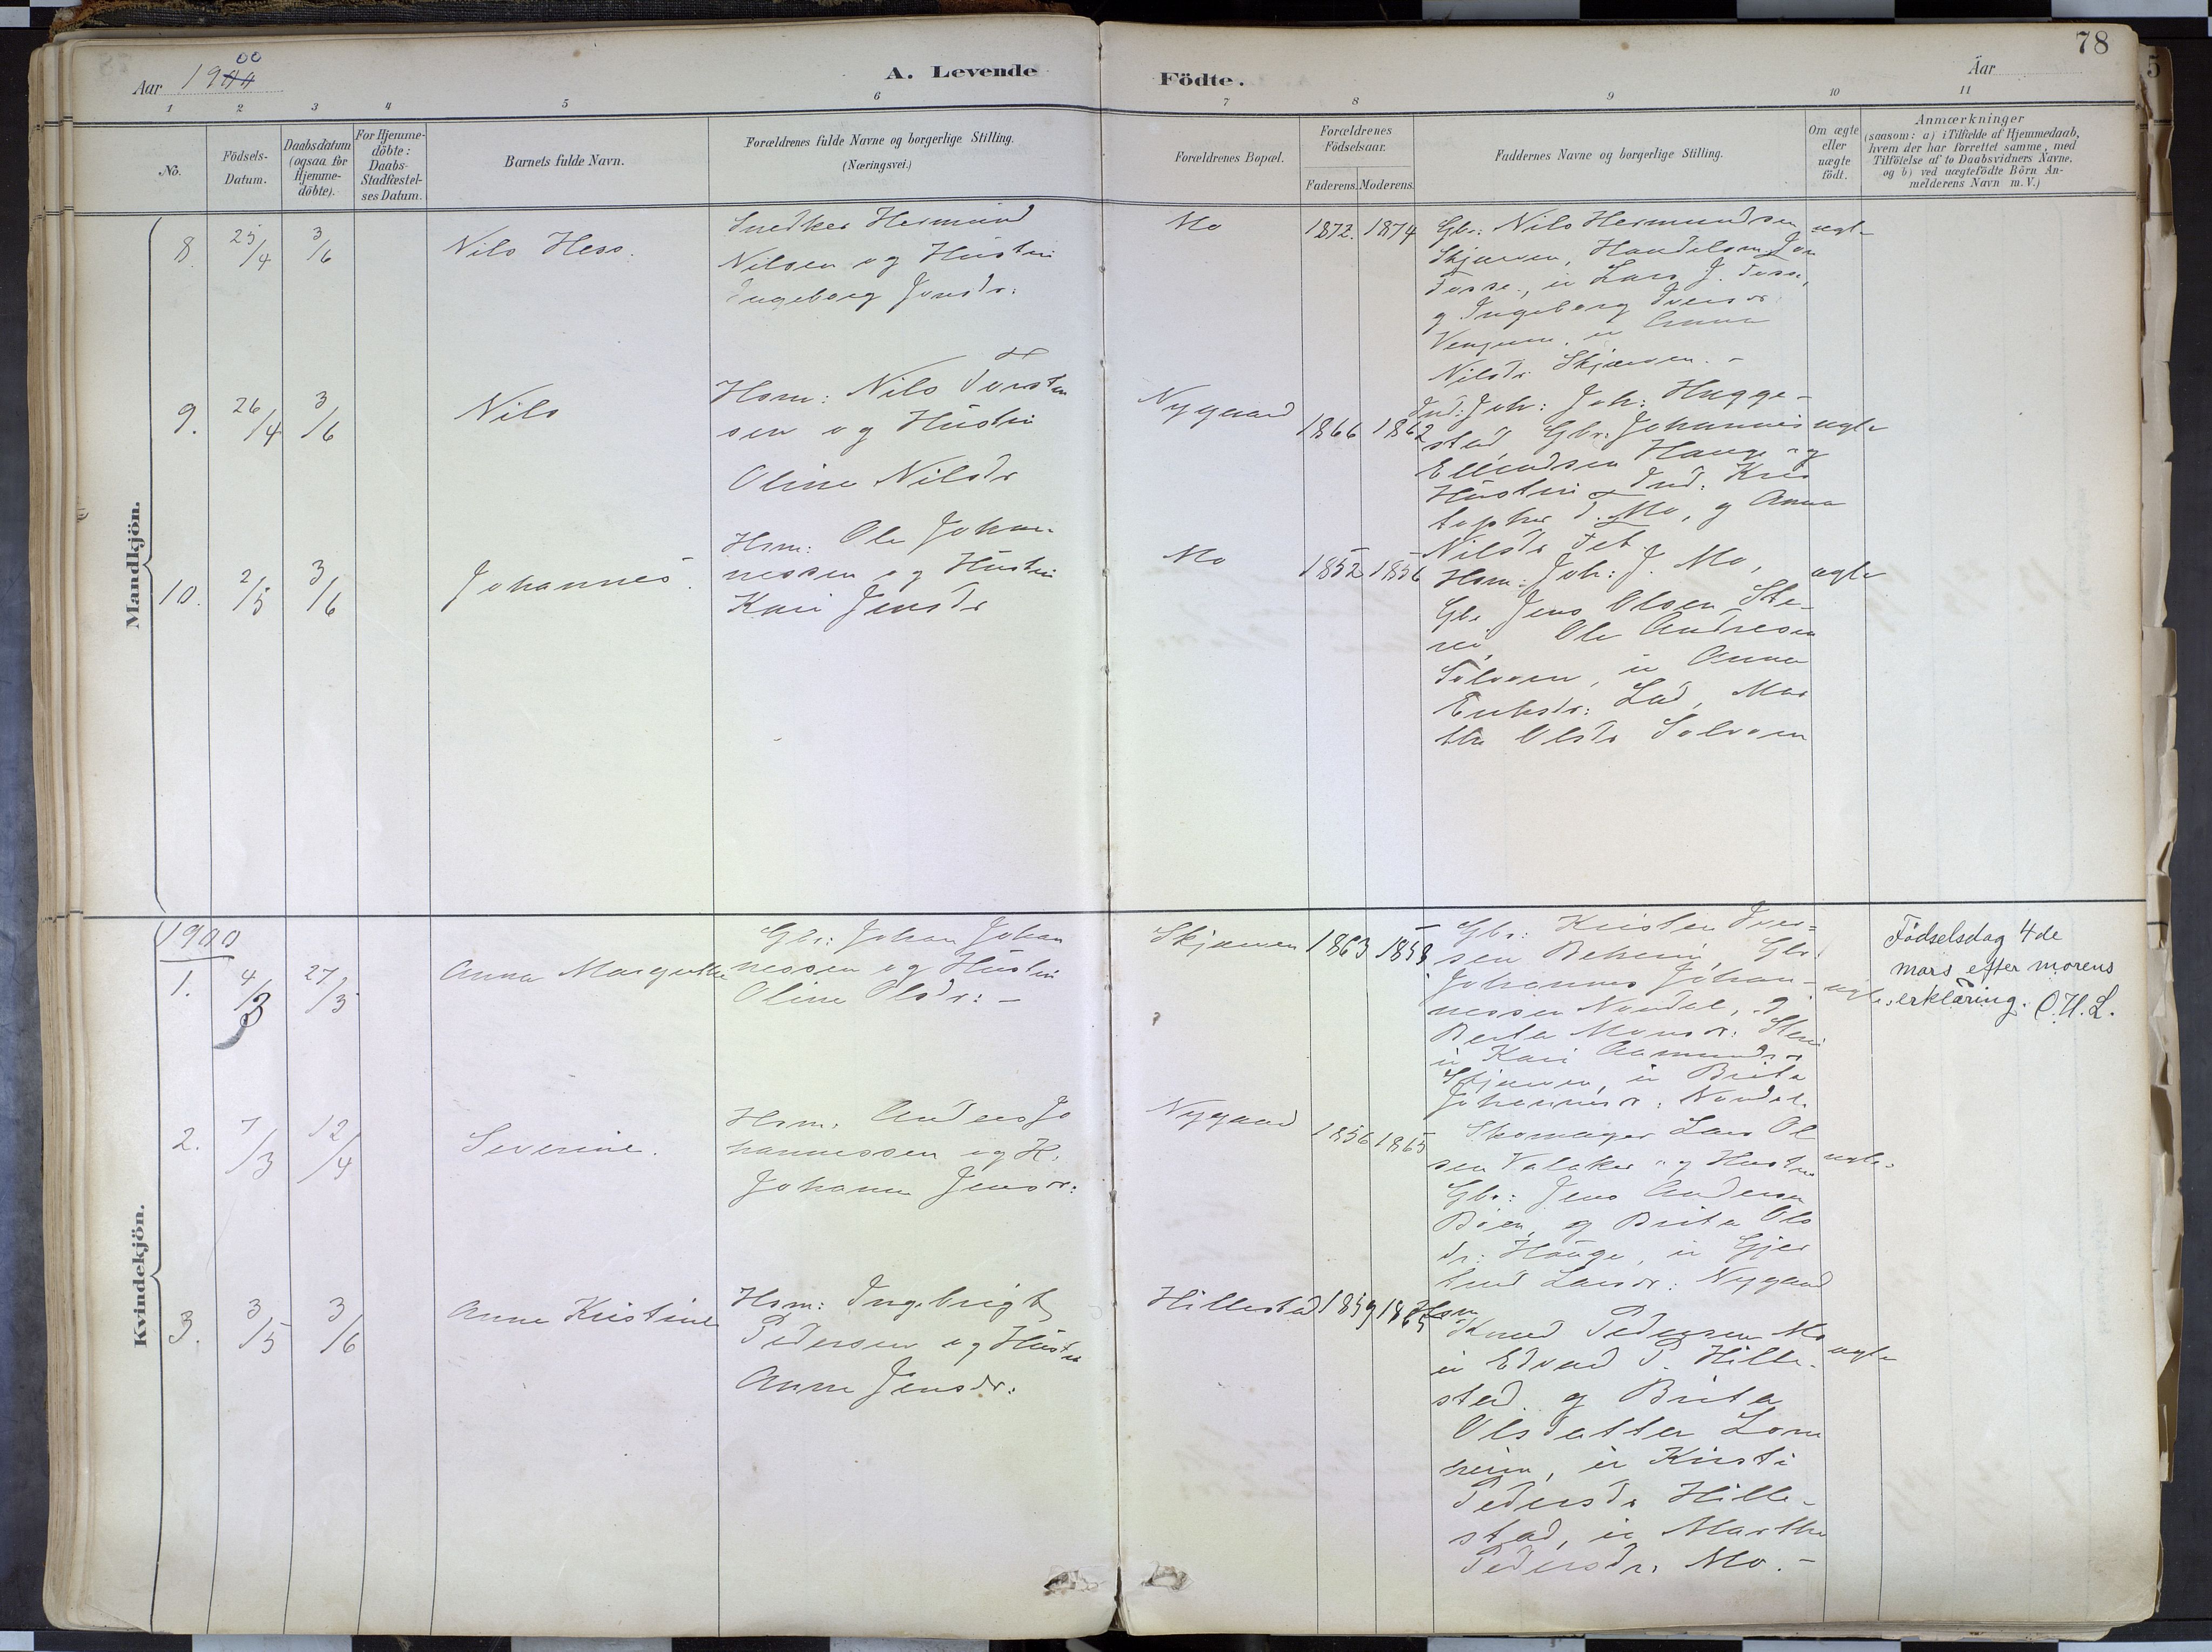 78
Aar 1900
A. Levende Födte.
Aar
1 2 3 4 5 6 7 8 9 10 11
No.
Födsels-
Datum.
Daabsdatum
(ogsaa for
Hjemme-
döbte).
For Hjemme-
döbte:
Daabs-
Stadfæstel-
ses Datum.
Barnets fulde Navn.
Forældrenes fulde Navne og borgerlige Stilling.
(Næringsvei.)
Forældrenes Bopæl.
Forældrenes
Födselsaar.
Faderens. Moderens.
Faddernes Navne og borgerlige Stilling.
Om ægte
eller
uægte
födt.
Anmærkninger
(saasom: a) i Tilfælde af Hjemmedaab,
hvem der har forrettet samme, med
Tilföielse af to Daabsvidners Navne,
og b) ved uægtefödte Börn An-
melderens Navn m. V.)
Mandkjön.
8. 25/4 3/6
Nils Hess.
Snedker Hermund
Nilsen og Hustru
Ingeborg Jonsdr:
Mo
1872. 1874
Gbr: Nils Hermundsen
Skjærven, Handelsm. Jon
Fosse, u Lars J. Fosse,
og Ingeborg Iversdr
Vengum, u Anna
Nilsdr Skjærven. -
ægte
9. 26/4 3/6
Nils
Hsm: Nils Torsten
sen og Hustru
Oline Nilsdr
Nygaard
1866 1862
Ind: Joh: Joh: Hugge-
stad Gbr: Johannes
Ellendsen Hauge og
Hustru Ind: Kris
topher T. Mo, og Anna
Nilsdr
ægte
10. 2/5 3/6
Johannes.
Hsm: Ole Johan
nessen og Hustru
Kari Jensdr
Mo
1852 1856
Hsm: Joh: J. Mo,
Gbr Jens Olsen Ste-
ni, Ole Andresen
Solvorn, u Anna
Eriksdr: Lad, Mar
the Olsdr Solvorn
ægte
Kvindekjön.
1900
1. 4/3 27/5
Anna Margrethe
Gbr: Johan Johan
nessen og Hustru
Oline Olsdr: -
Skjærven
1863 1858
Gbr: Kristen Iver-
sen Beheim, Gbr
Johannes Johan-
nessen Nondal, og
Berta Monsdr: Steni
u Kari Aamundsdr
Skjærven, u Brita
Johannisdr: Nondal.
ægte.
Födselsdag 4de
mars efter morens
erklæring. O.H.L.
2. 7/3 12/4
Severine.
Hsm. Anders Jo
hannessen og H.
Johanne Jensdr:
Nygaard
1856 1865
Skomager Lars Ol
sen Valaker og Hustru
Gbr: Jens Andersen
Böen, og Brita Ols
dr: Hauge, u Gjer
trud Larsdr: Nygaard
ægte.
3. 3/5 3/6
Anne Kristine
Hsm: Ingebrigt
Pedersen og Hustru
Anna Jensdr:
Hillestad
1859 1865
Hsm
Knud Pedersen Mo
u Edvard P. Hille-
stad, og Brita
Olsdatter Lom
heim, u Kristi
Pedersdr Hille-
stad, u Marthe
Pedersdr. Mo. -
ægte